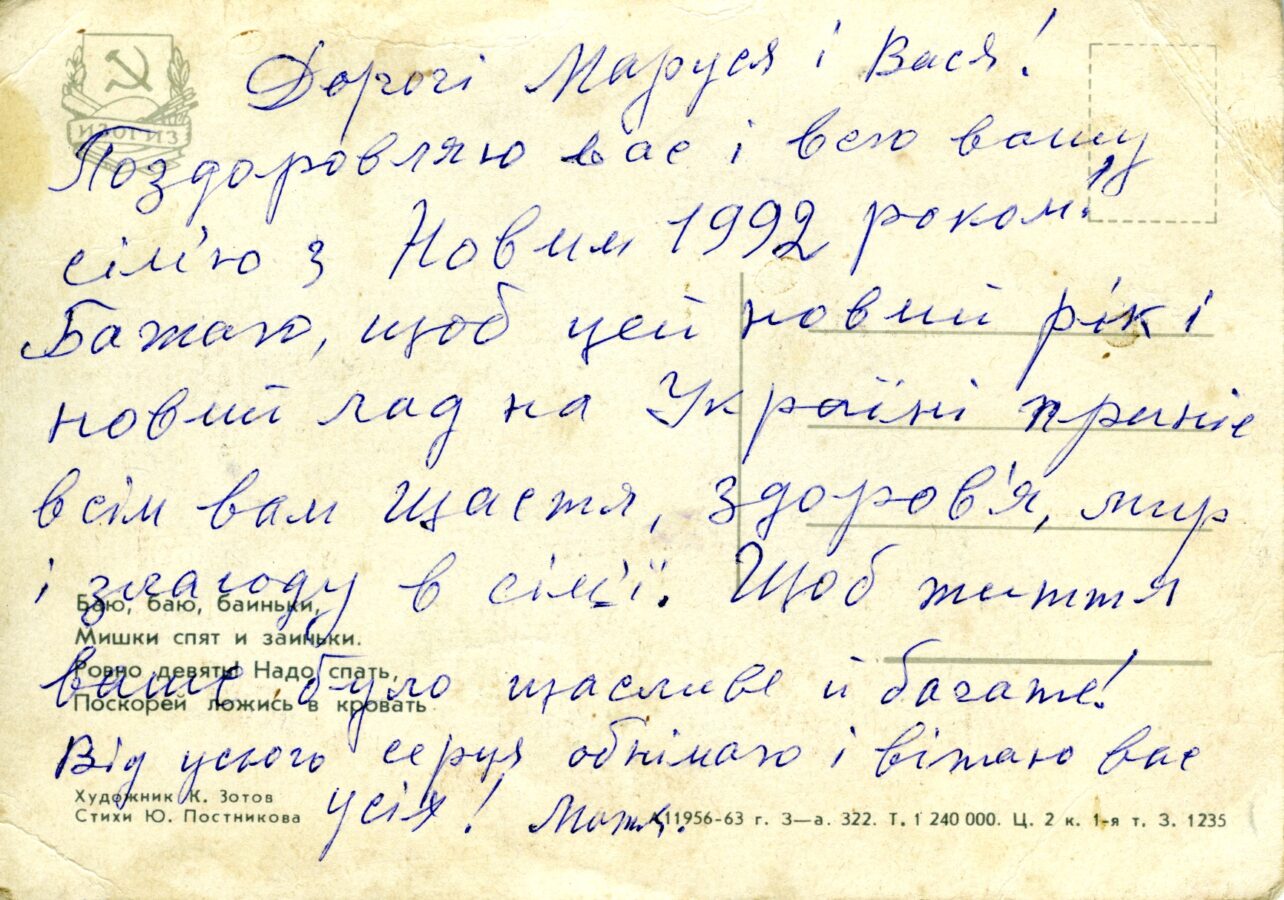 Дорогі Маруся і Вася!
ИЗОГИЗ
Поздоровляю вас і всю вашу
сім'ю з Новим 1992 роком!
Бажаю, щоб цей новий рік і
новий лад на Україні приніс
всім вам щастя, здоров'я, мир
і злагоду в сім'ї. Щоб життя
ваше було щасливе й багате!
Від усього серця обнімаю і вітаю вас
усіх!
Баю, баю, баиньки,
Мишки спят и заиньки.
Ровно девять! Надо спать,
Поскорей ложись в кровать
Художник К. Зотов
Стихи Ю. Постникова
А11956-63 г. З—а. 322. Т. 1 240 000. Ц. 2 к. 1-я т. З. 1235